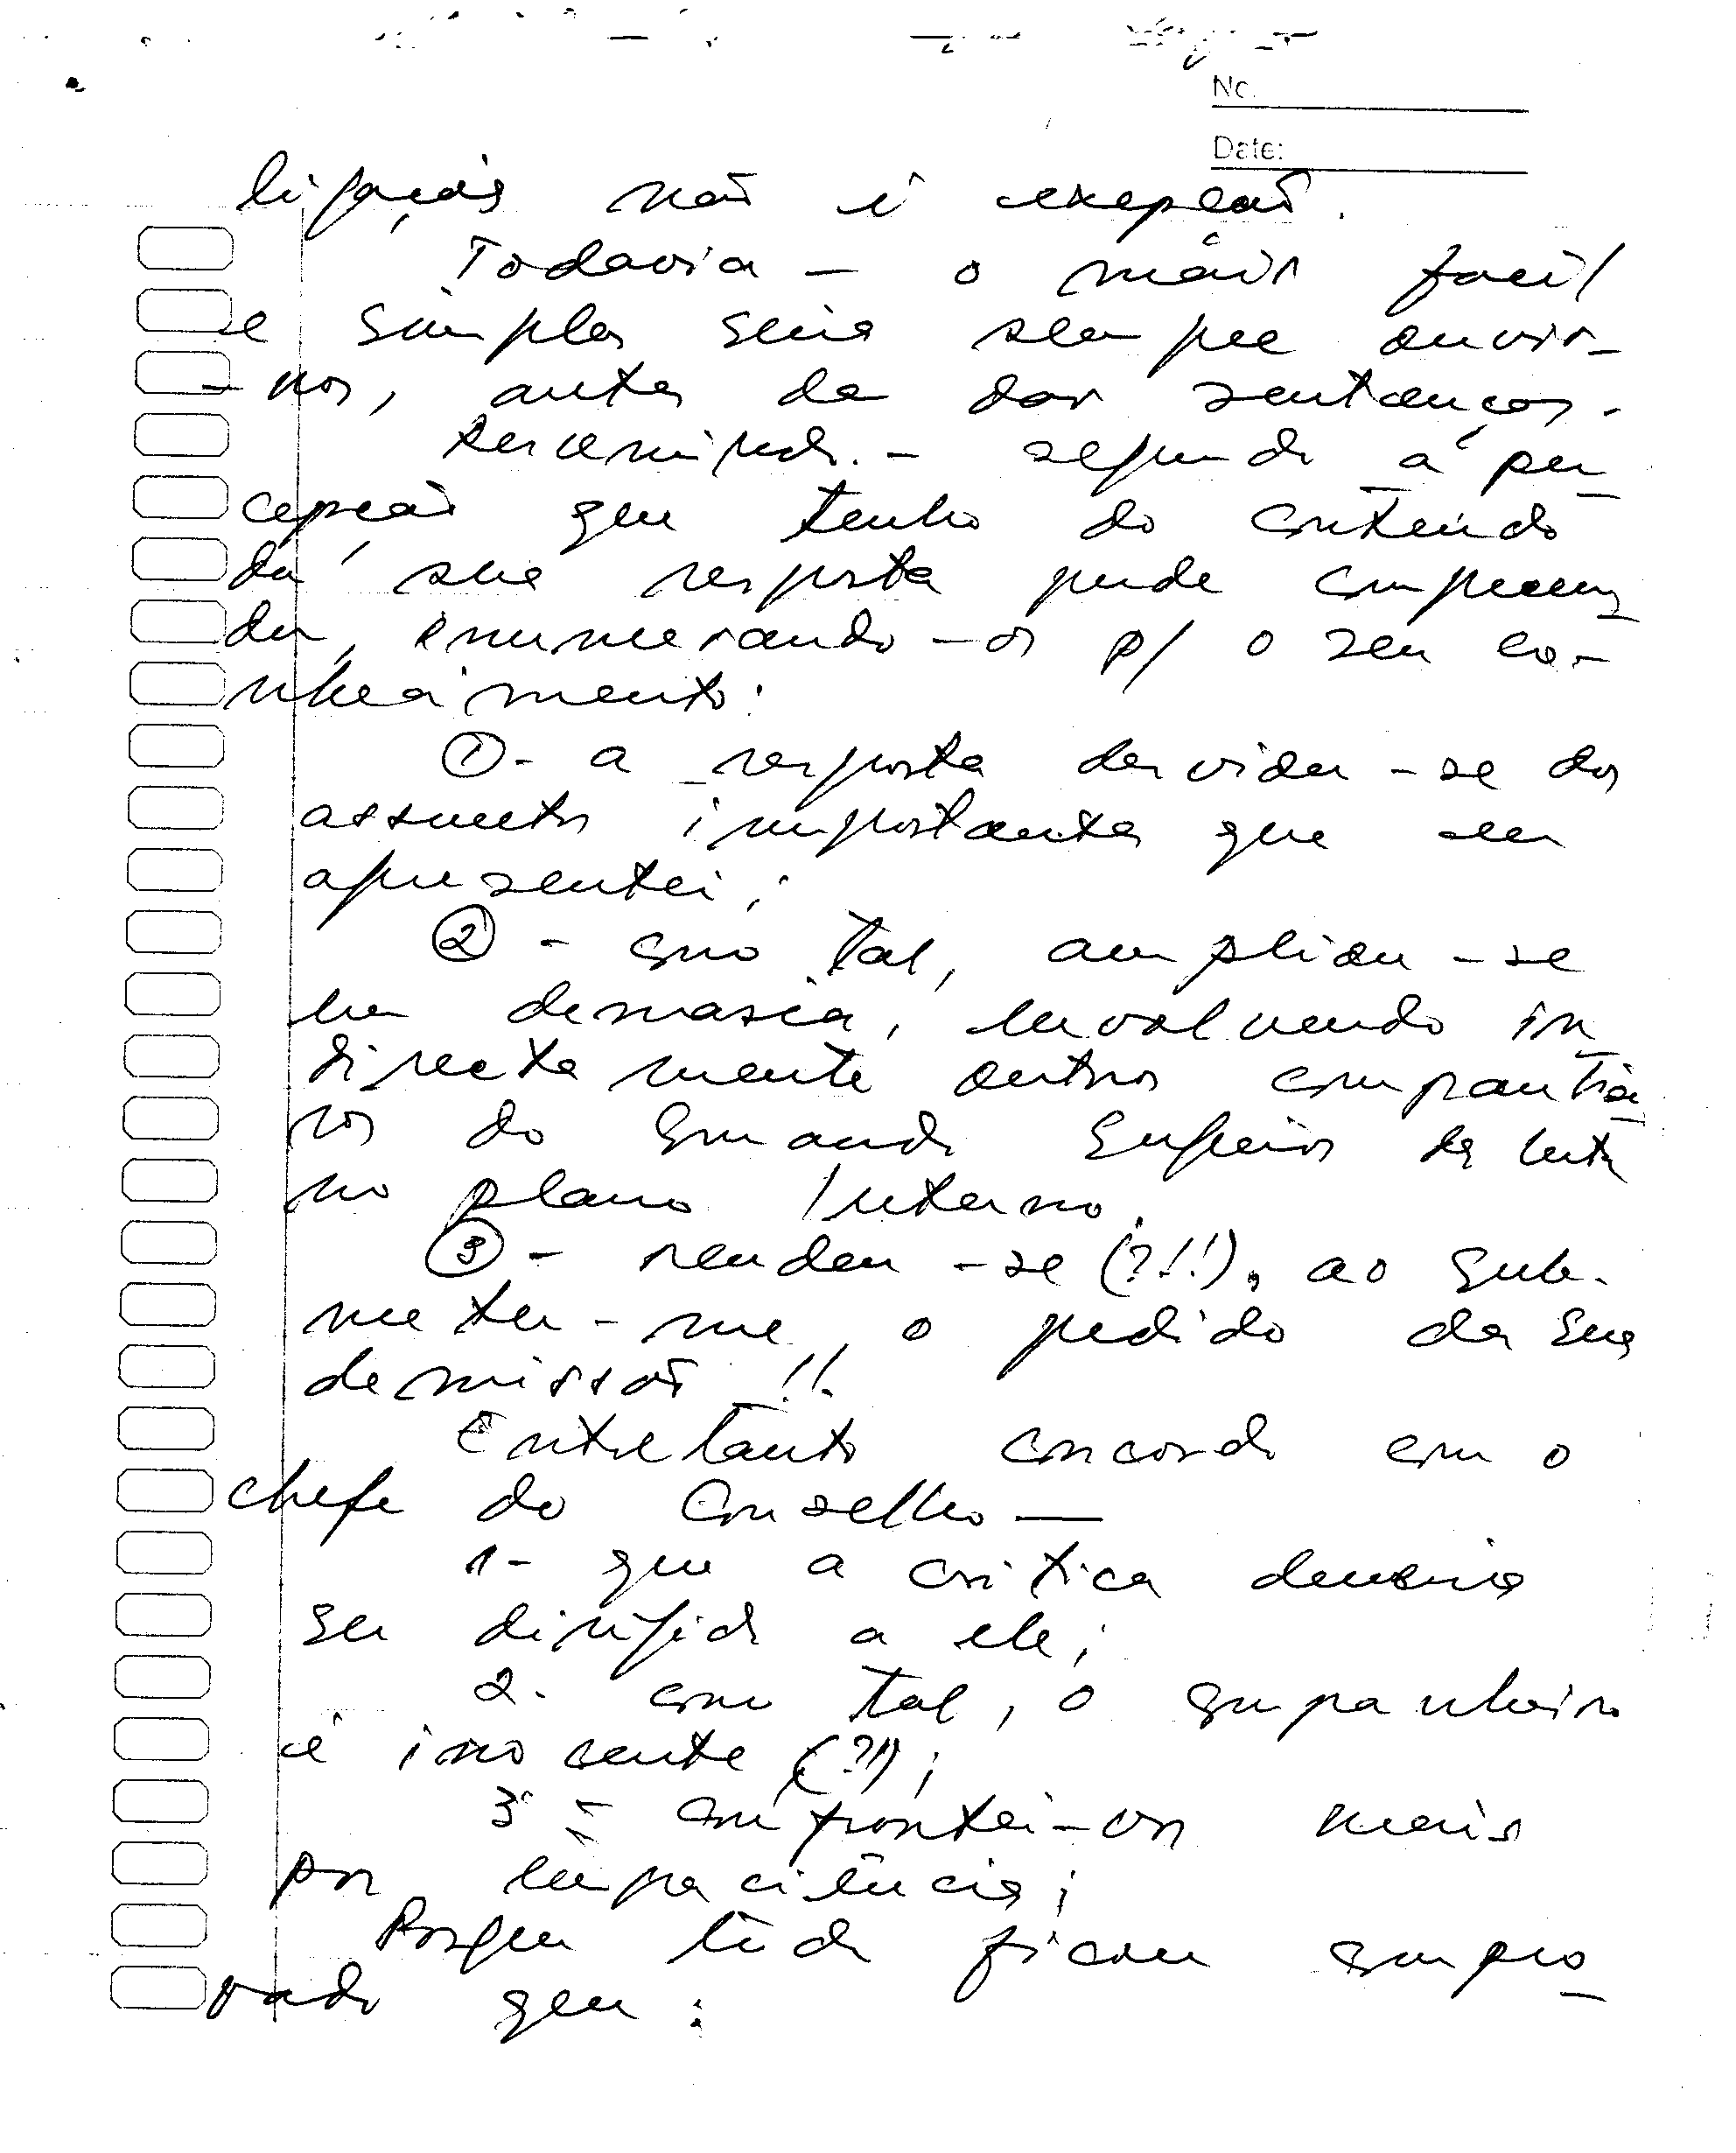 No.
Date:
ligações não é excepção.
Todavia - o máis facil
e simples seria sempre ouvir-
-nos, antes de dar sentenças.
segundo a per_
cepção que tenho do conteúdo
da sua resposta pude compreen_
der, enumerando-os p/ o seu co-
nhecimento:
① - a resposta desviou-se dos
assuntos importantes que eu
apresentei;
② - como tal, ampliou-se
em demasia, envolvendo in_
directamente outros companhei_
ros do Comando Superior da luta
no plano Interno.
③ - rendeu-se (?!!), ao sub-
meter-me, o pedido da sua
demissão !!.
Entretanto concordo com o
chefe do Conselho —
1- que a critica deveria
ser dirigida a ele;
2. como tal, o companheiro
é inocente (?!);
3 - confrontei-os mais
por impaciência;
Porque tudo ficou compro_
vado que :